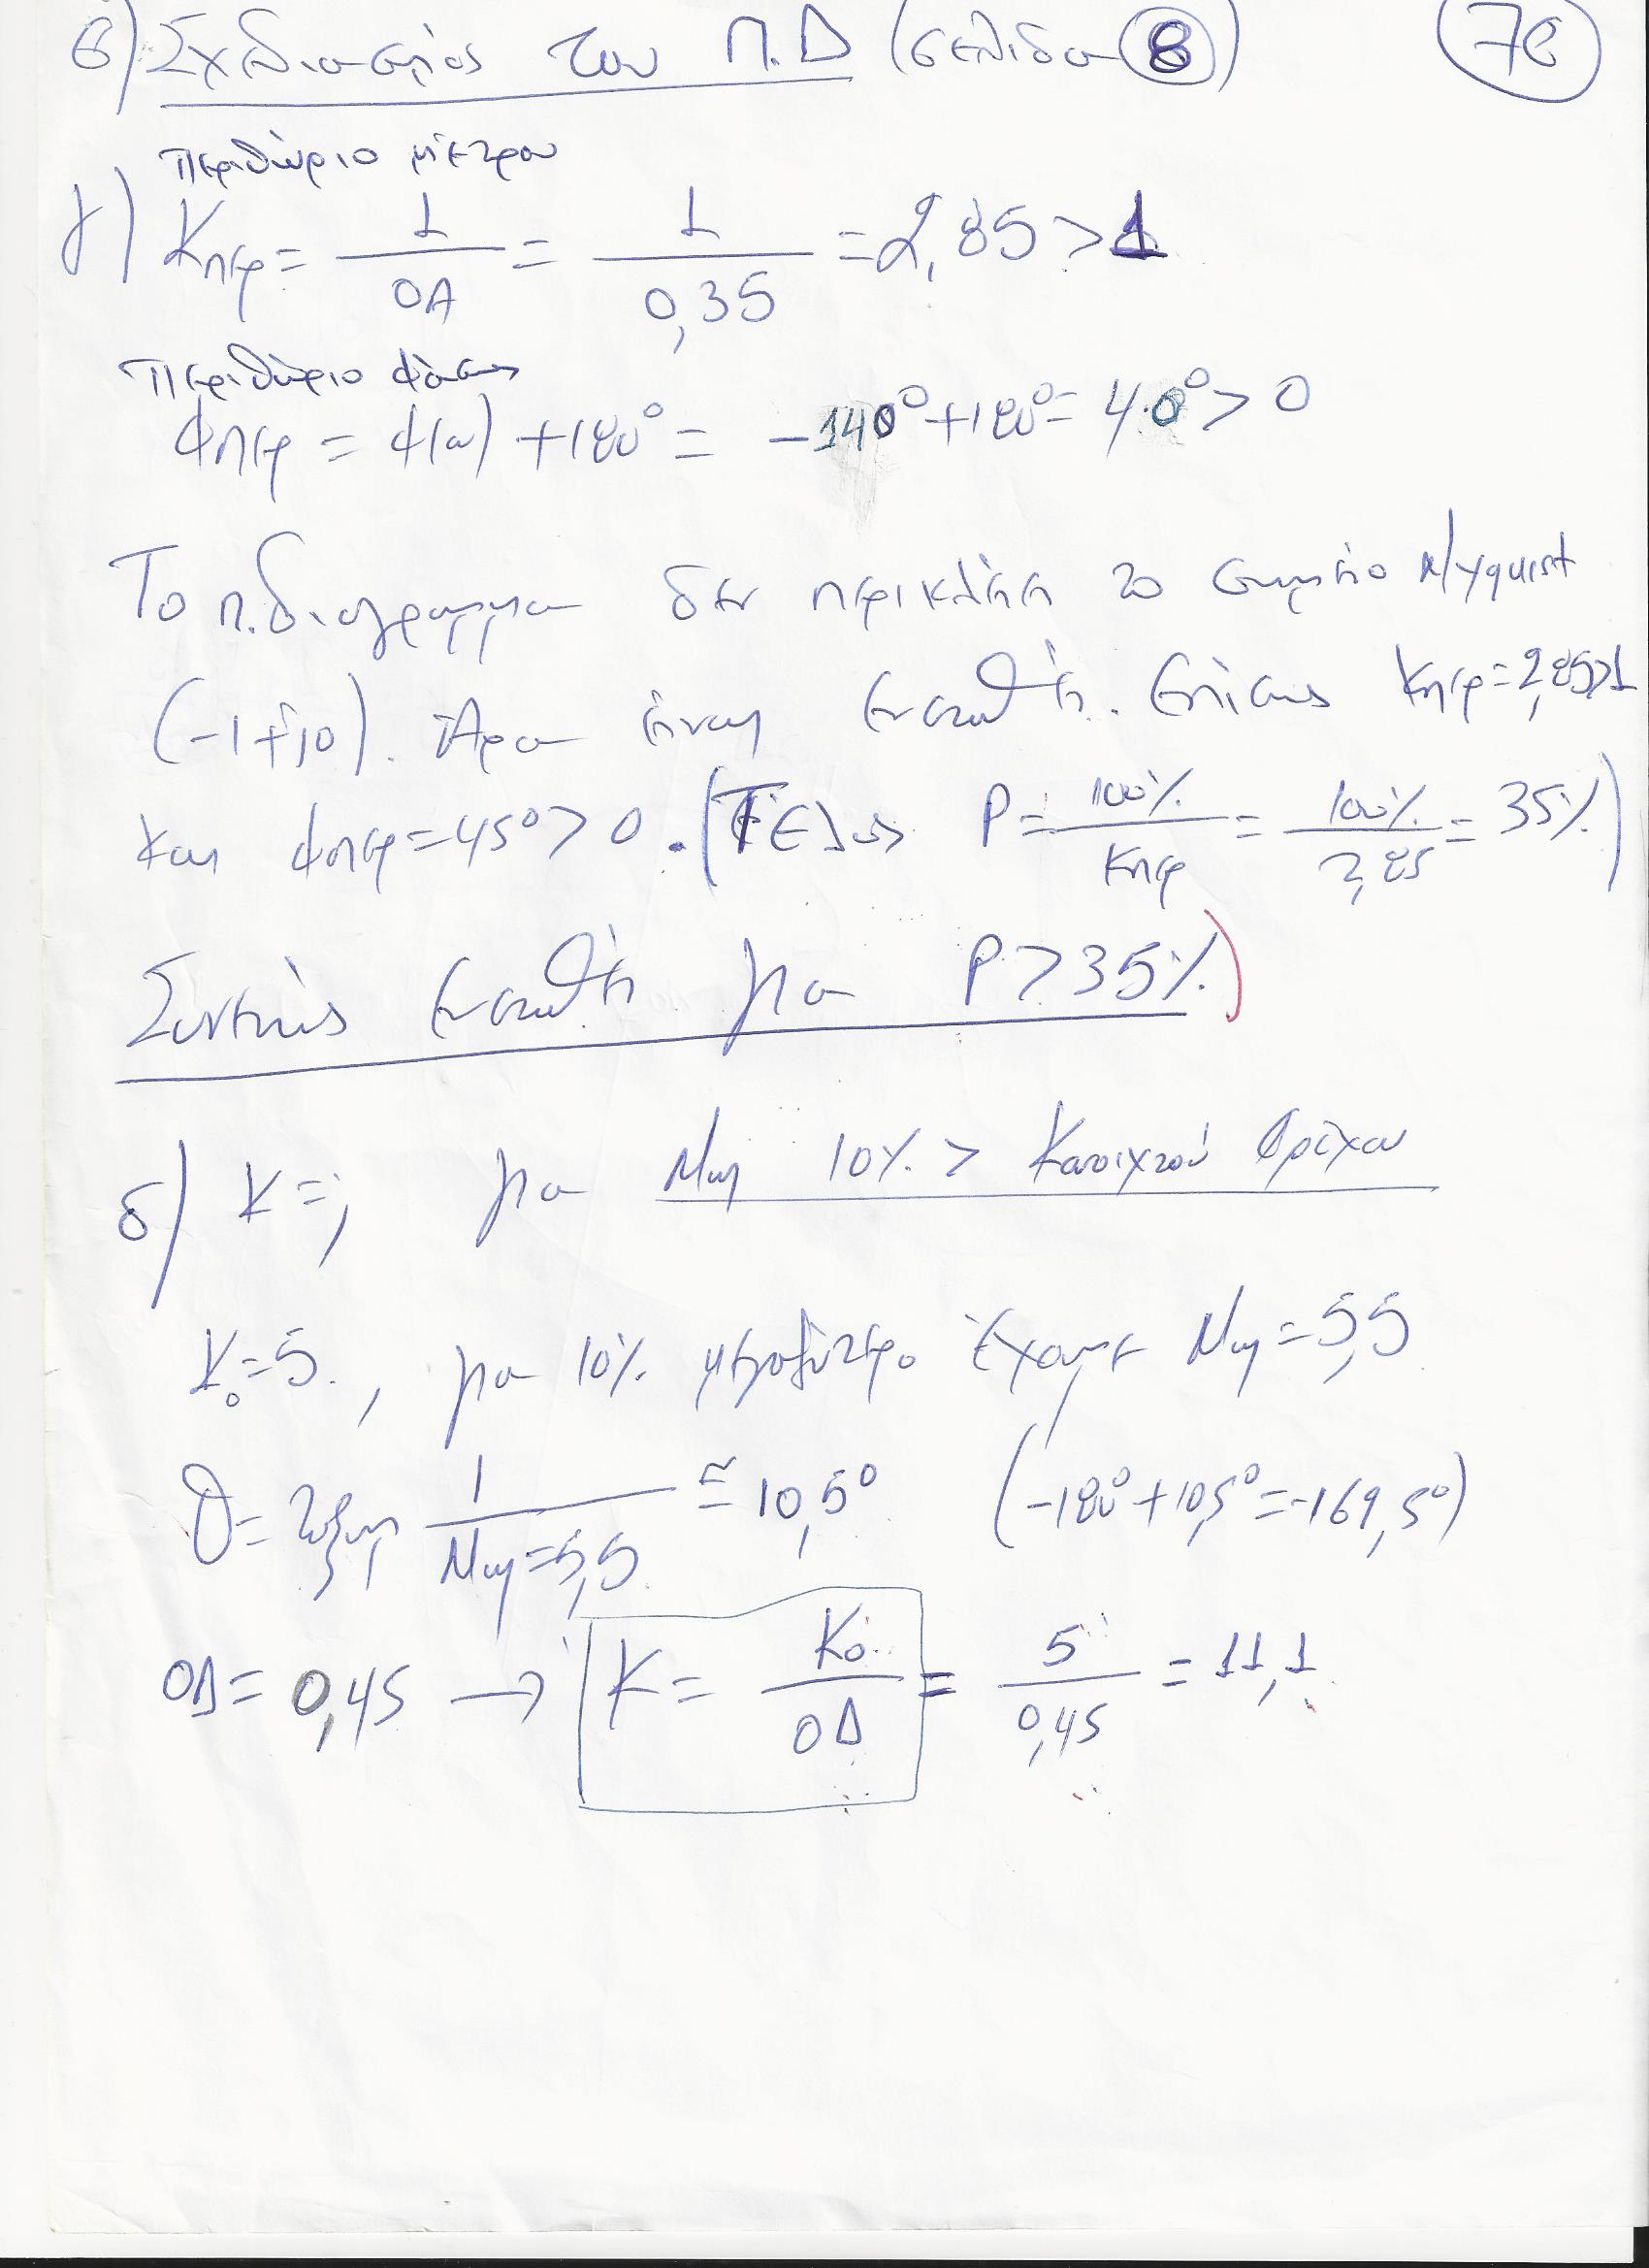 β) Σχεδιασμός του Π.Δ (σελίδα 8) 7β
περιθώριο μέτρου
γ) Kπερ = 1 / OA = 1 / 0,35 = 2,85 > 1
περιθώριο φάσεως
φπερ = φ(ω) + 180° = -140° + 180° = 40° > 0
Το π.διαγραμμα δεν περικλείει το σημείο Nyquist
(-1+j0). Άρα είναι ευσταθή. Επίσης Kπερ=2,85>1
και φπερ=45°>0. (Τέλος P = 100% / Kπερ = 100% / 2,85 = 35%)
Συνεπώς ευσταθή για P>35%)
δ) K=; για Mω 10% > Κανοιχτού βρόχου
K₀=5, για 10% μεγαλύτερο έχουμε Mω=5,5
θ = τοξημ 1 / Mω=5,5 ≅ 10,5° (-180°+10,5°=-169,5°)
ΟΔ = 0,45 → K = K₀ / ΟΔ = 5 / 0,45 = 11,1